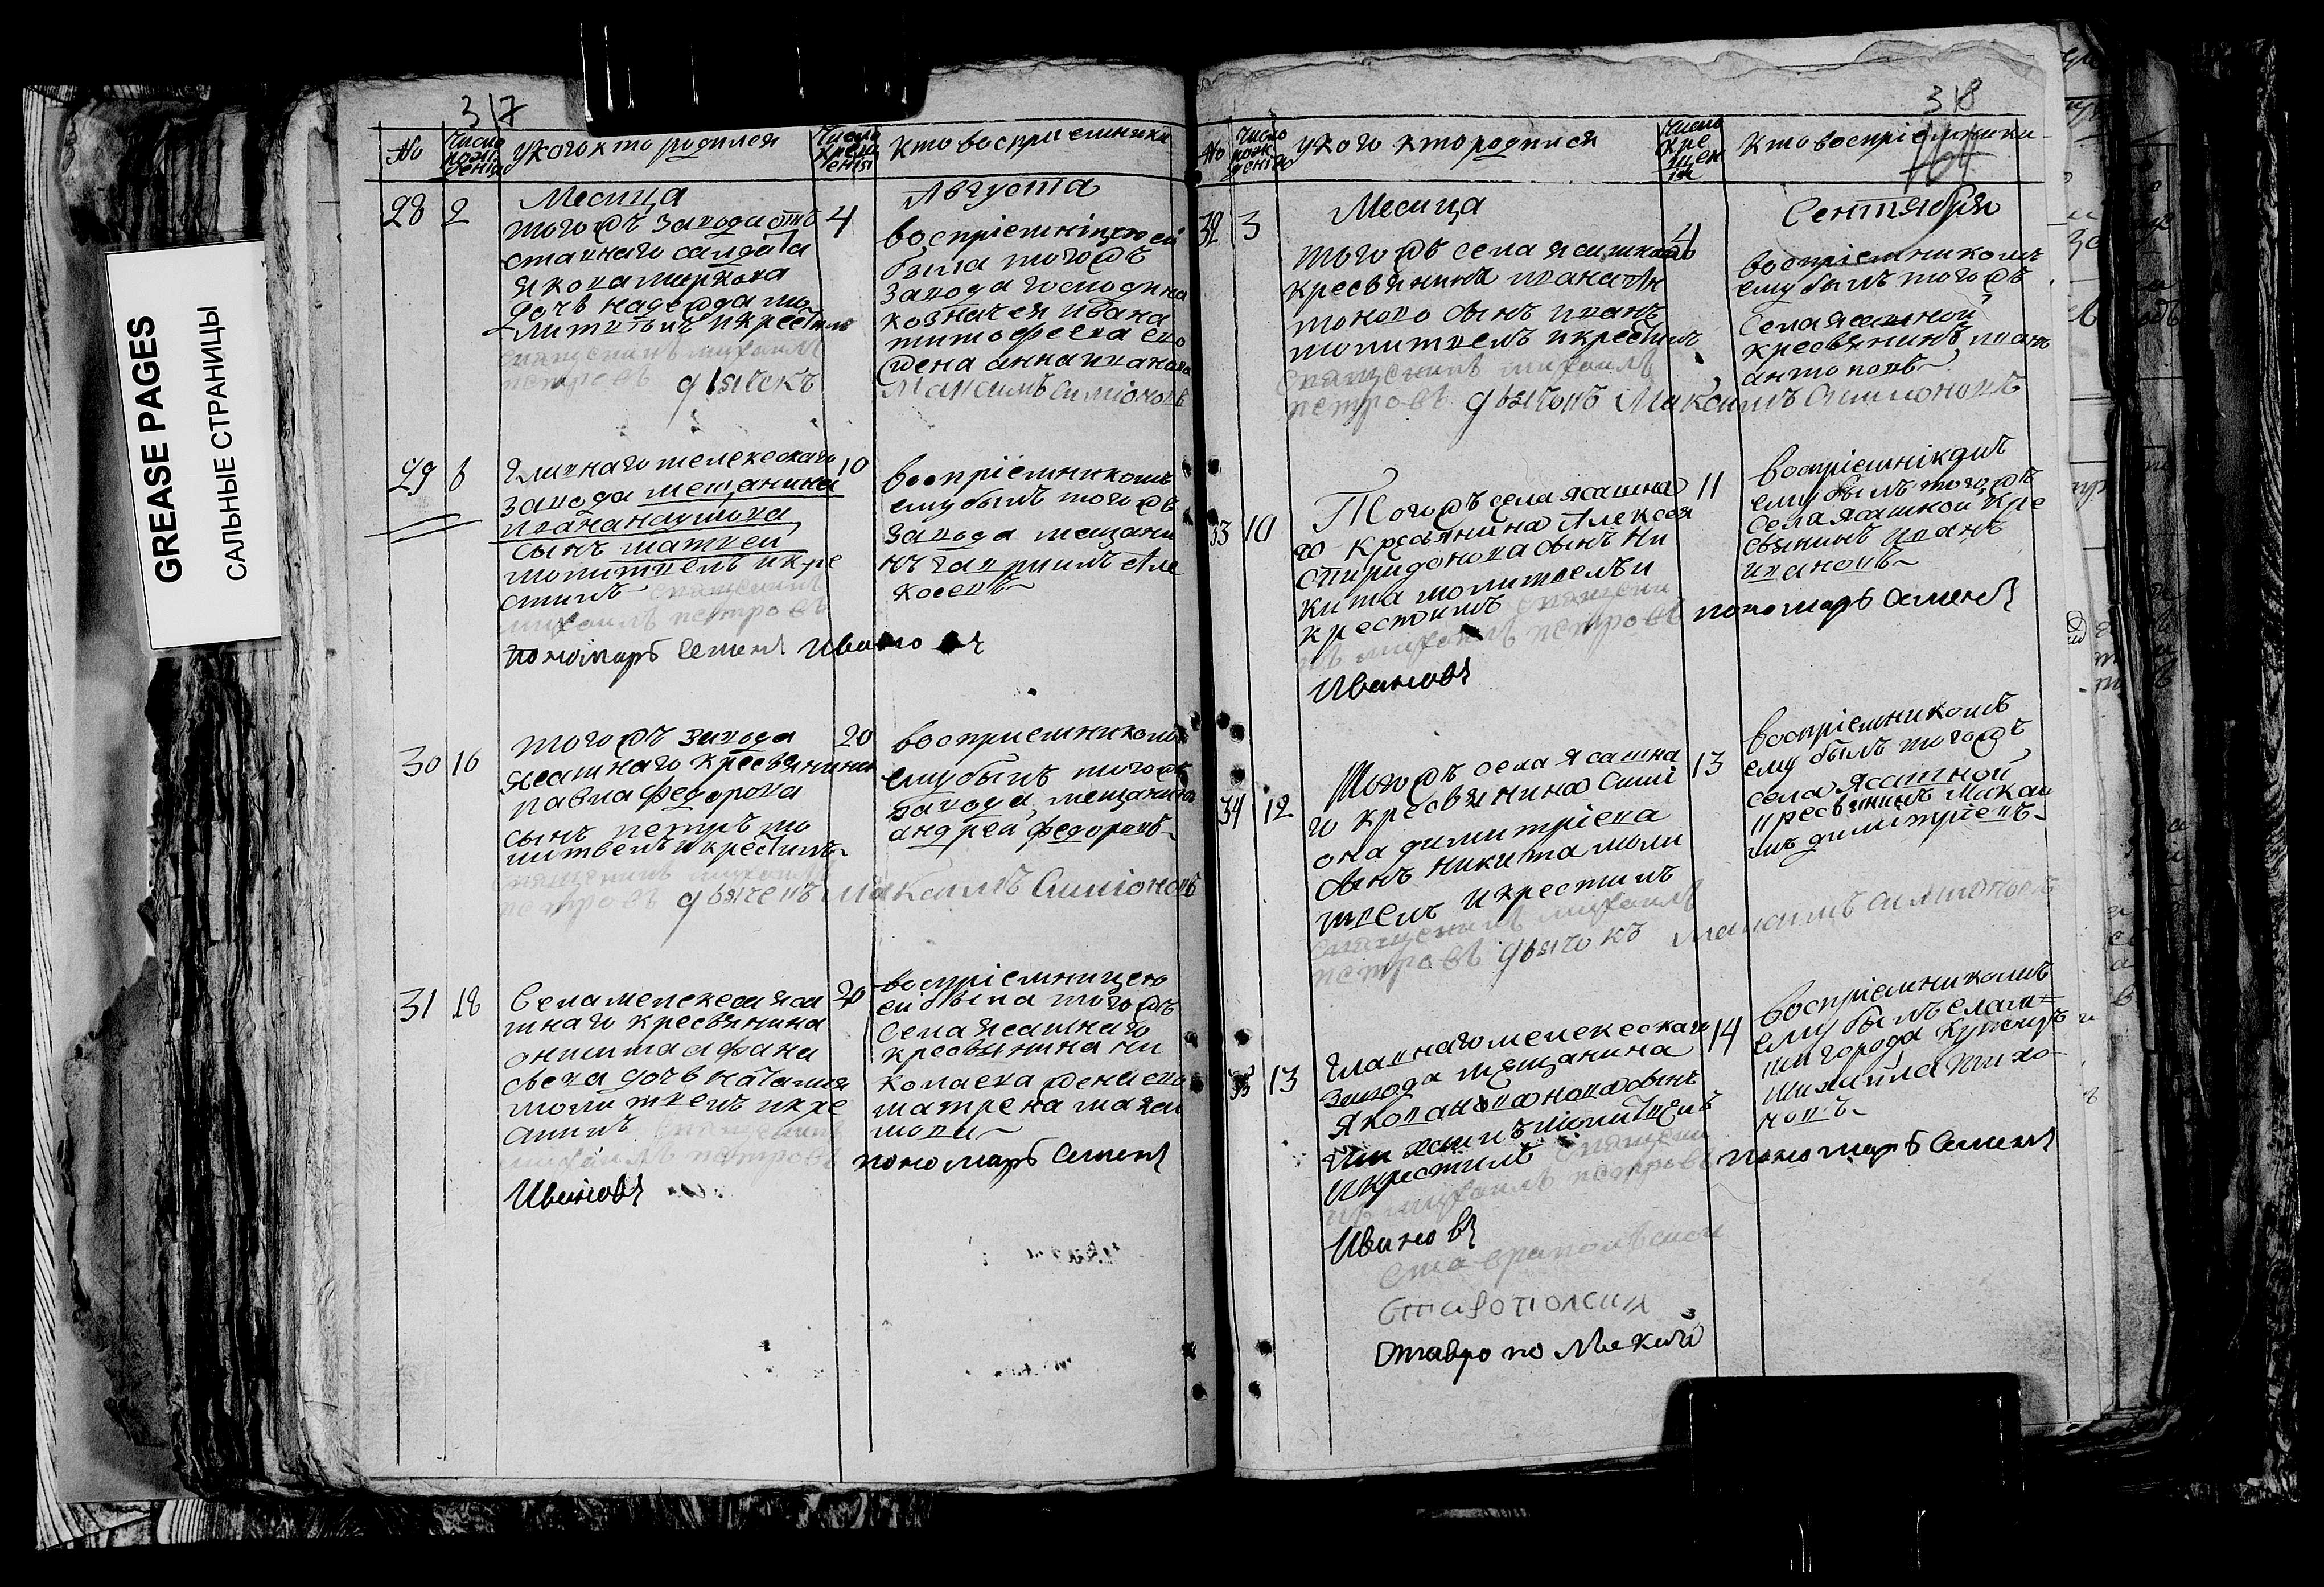 GREASE PAGES
САЛЬНЫЕ СТРАНИЦЫ
317
No
Число рождения
у кого кто родился
Число крещения
кто восприемники
Месица
Августа
28 2
тогождъ завода отъ
4
ставнаго салдата
якова
дочь надежда мо
литвилъ и крестилъ
священникъ михаилъ
петровъ дьячекъ
воспріемницею ей
была тогождъ
завода господина
ивана
тимофеева ево
жена анна иванова
Максимъ Симіоновъ
29 8
главнаго мелекескаго
10
завода мещанина
ивана наумова
сынъ матвей
молитвелъ и кре
стилъ священникъ
михаилъ петровъ
пономарь Семенъ Ивановъ
воспріемникомъ
ему былъ тогождъ
завода мещани
нъ гаврилъ але
ксеевъ
30 16
тогождъ завода
20
ясашнаго кресьянина
павла федорова
сынъ петръ мо
литвелъ и крестилъ
священникъ михаилъ
петровъ дьячекъ Максимъ Симіоновъ
восприемникомъ
ему былъ тогождъ
завода мещанинъ
андрей федоровъ
31 18
Села мелекеса яса
20
шнаго кресьянина
онисима афана
сьева дочь наталия
молитвелъ и кре
стилъ священникъ
михаилъ петровъ
пономарь Семенъ
Ивановъ
воспріемницею
ей была тогождъ
села ясашнаго
кресьянина ни
колаева жена ево
матрена макси
мова
318
No
Число рождения
у кого кто родился
Число крещения
кто воспріемники
164
Месица
Сентября
32 3
тогождъ села ясашнаго
4
кресьянина ивана ан
тонова сынъ иванъ
молитвелъ и крестилъ
священникъ михаилъ
петровъ дьячокъ Максимъ Симионовъ
воспріемникомъ
ему былъ тогождъ
села ясашной
кресьянинъ иванъ
антоновъ
33 10
Тогождъ села ясашна
11
го кресьянина Алексея
спиридонова сынъ ни
кита молитвелъ и
крестилъ священни
къ михаилъ петровъ
пономарь Семенъ
Ивановъ
воспріемнікомъ
ему былъ тогождъ
села ясашной кре
сьянинъ иванъ
ивановъ
34 12
Тогождъ села ясашна
13
го кресьянина Сими
она димитріева
сынъ никита моли
твелъ и крестилъ
священникъ михаилъ
петровъ дьячокъ Максимъ Симионовъ
воспріемникомъ
ему былъ тогождъ
села ясашной
кресьянинъ Макси
мъ димитріевъ
35 13
главнаго мелекескаго
14
завода мещанина
якова
молитвелъ
и крестилъ священни
къ михаилъ петровъ
пономарь Семенъ
Ивановъ
воспріемникомъ
ему былъ елат=
ми города купецъ
михайла тихо
новъ
Ставропольской
Ставропольской